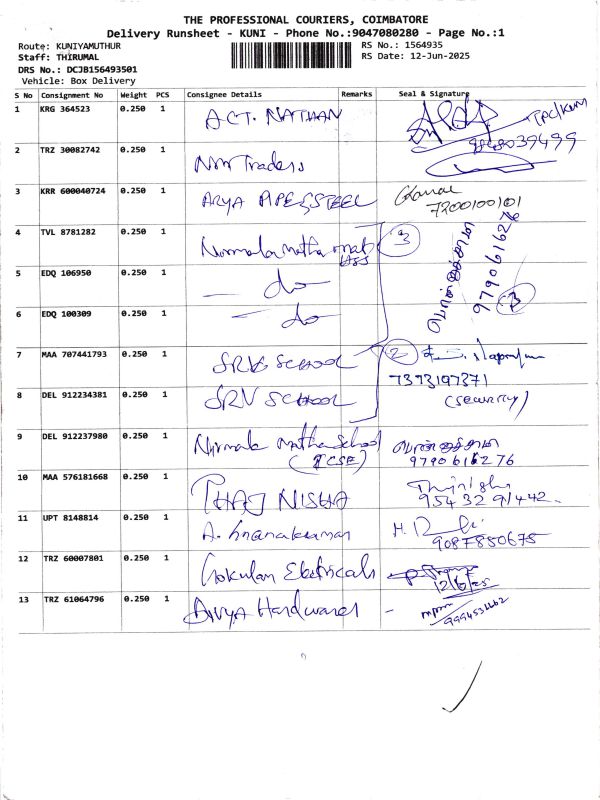 THE PROFESSIONAL COURIERS, COIMBATORE
Delivery Runsheet - KUNI - Phone No.:9047080280 - Page No.:1
Route: KUNIYAMUTHUR
RS No.: 1564935
Staff: THIRUMAL
RS Date: 12-Jun-2025
DRS No.: DCJB156493501
Vehicle: Box Delivery
S No Consignment No Weight PCS Consignee Details Remarks Seal & Signature
1 KRG 364523 0.250 1 A.C.T. NATHAN
2 TRZ 30082742 0.250 1 NM Traders
3 KRR 600040724 0.250 1 ARYA PIPE & STEEL 7200100101
4 TVL 8781282 0.250 1 Nirmala matha mat 3
5 EDQ 106950 0.250 1 - do 9790616276
6 EDQ 100309 0.250 1 - do 3
7 MAA 707441793 0.250 1 SRV SCHOOL 2
7393197371
8 DEL 912234381 0.250 1 SRV SCHOOL (security)
9 DEL 912237980 0.250 1 Nirmala Matha School
(ICSE) 9790616276
10 MAA 576181668 0.250 1 THAJ NISHA
9543291442
11 UPT 8148814 0.250 1 A. Gnanakumar
9087850675
12 TRZ 60007801 0.250 1 Gokulam Electricals
12/6/25
13 TRZ 61064796 0.250 1 Divya Hardwares -